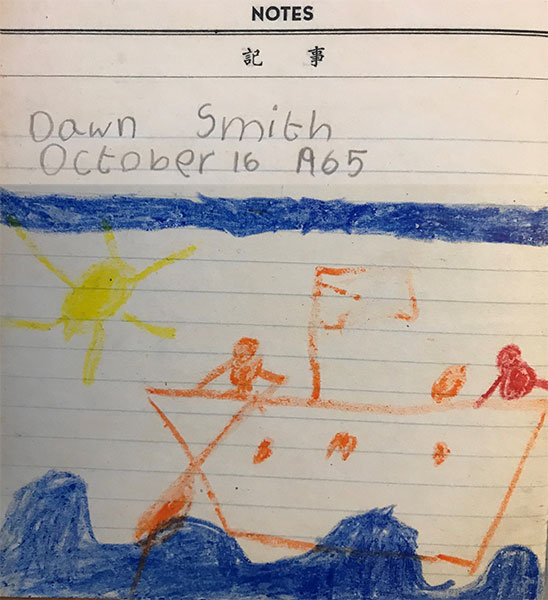 NOTES
記 事
Dawn Smith
October 16 A65